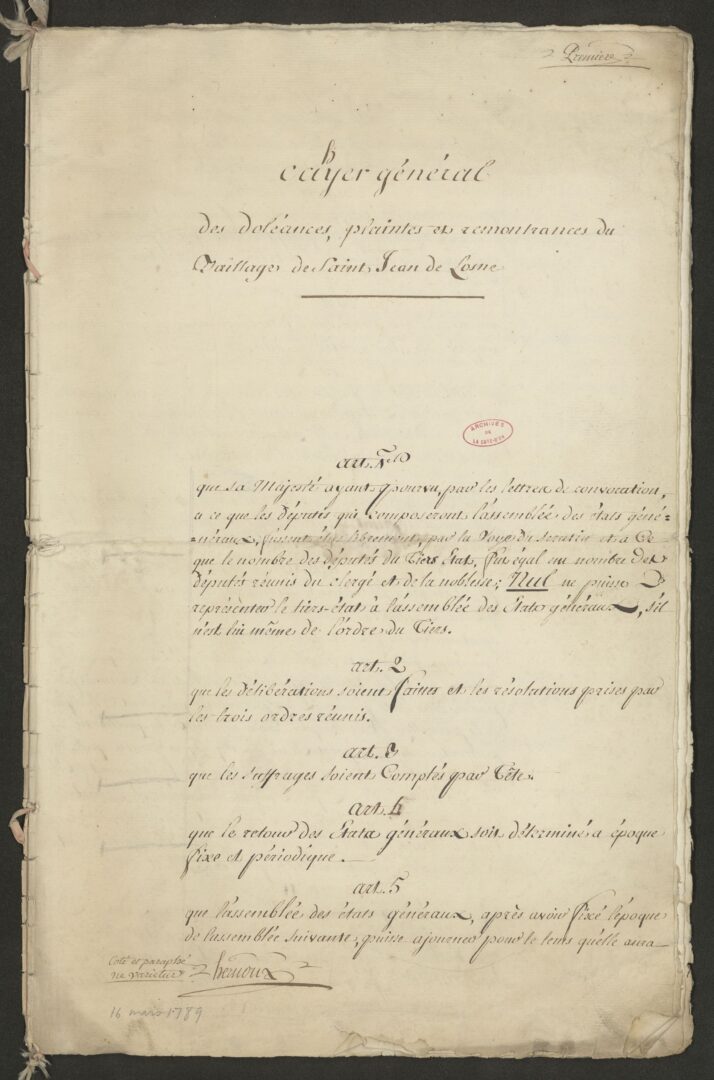 Première
cahyer général
des doléances, plaintes et remontrances du
Baillage de Saint Jean de Losne
ARCHIVES
DE
LA COTE-D'OR
art. 1er
que sa Majesté ayant pourvu, par les lettres de convocation,
a ce que les Députés qui composeront l'assemblée des états géné=
=néraux, fussent élus librement, par la voye du scrutin et a ce
que le nombre des députés du Tiers Etat, fut égal au nombre des
Députés réunis du clergé et de la noblesse; Nul ne puisse
représenter le tiers-état à l'assemblée des Etats généraux, s'il
n'est lui même de l'ordre du Tiers.
art. 2
que les délibérations soient faittes et les résolutions prises par
les trois ordres réunis.
art. 3
que les suffrages soient Comptés par Tête.
art. 4
que le retour des Etats généraux soit déterminé a époque
fixe et périodique.
art. 5
que l'assemblée des états généraux, après avoir fixé l'époque
de l'assemblée suivante, puisse ajourner pour le tems qu'elle aura
Coté et paraphé
ne varietur hernoux
16 mars 1789